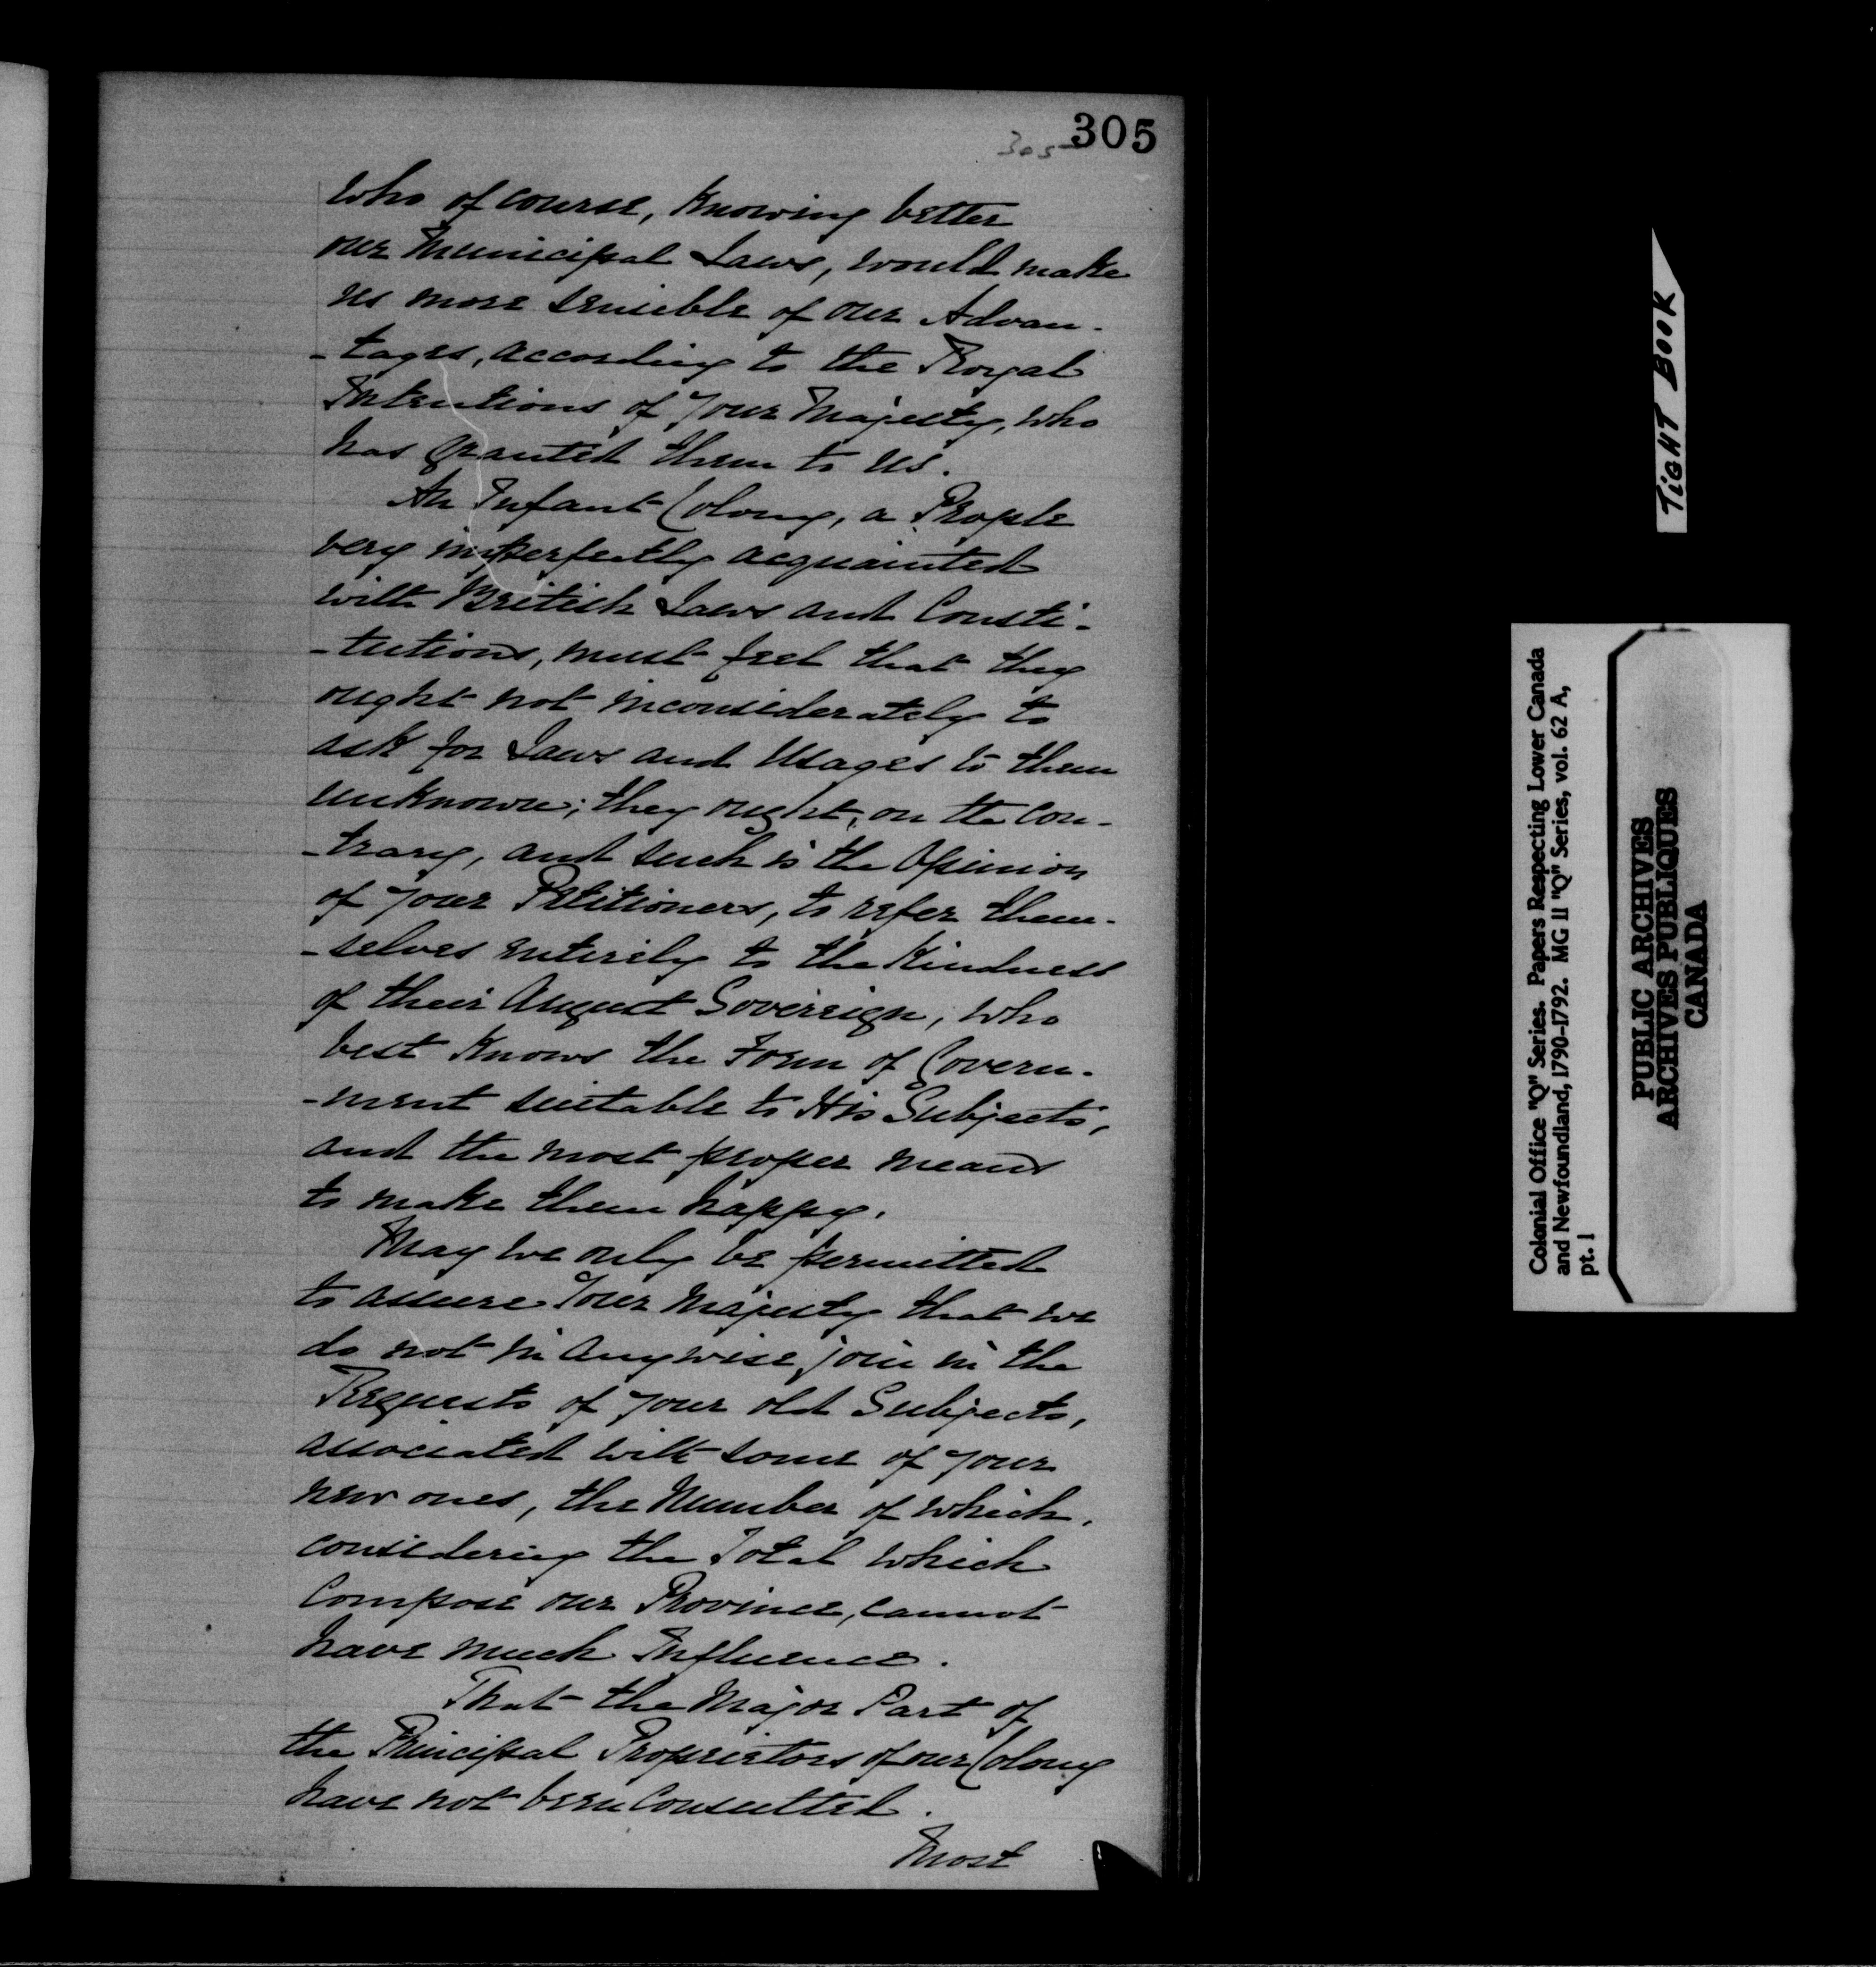 305
305
who of course, knowing better
our Municipal Laws, would make
us more sensible of our Advan-
-tages, according to the Royal
Intentions of your Majesty, who
has granted them to us.
An Infant Colony, a People
very imperfectly acquainted
with British Laws and Consti-
-tutions, must feel that they
ought not inconsiderately to
ask for Laws and Usages to them
unknown; they ought, on the con-
-trary, and such is the Opinion
of your Petitioners, to refer them-
-selves entirely to the Kindness
of their August Sovereign, who
best knows the Form of Govern-
-ment suitable to His Subjects,
and the most proper means
to make them happy.
May we only be permitted
to assure Your Majesty that we
do not in anywise join in the
Requests of your old Subjects,
associated with some of your
new ones, the Number of which,
considering the Total which
Compose our Province, cannot
have much Influence.
That the Major Part of
the Principal Proprietors of our Colony
have not been Consulted.
Most
TIGHT BOOK
Colonial Office "Q" Series. Papers Respecting Lower Canada
and Newfoundland, 1790-1792. MG 11 "Q" Series, vol. 62 A,
pt. 1
PUBLIC ARCHIVES
ARCHIVES PUBLIQUES
CANADA